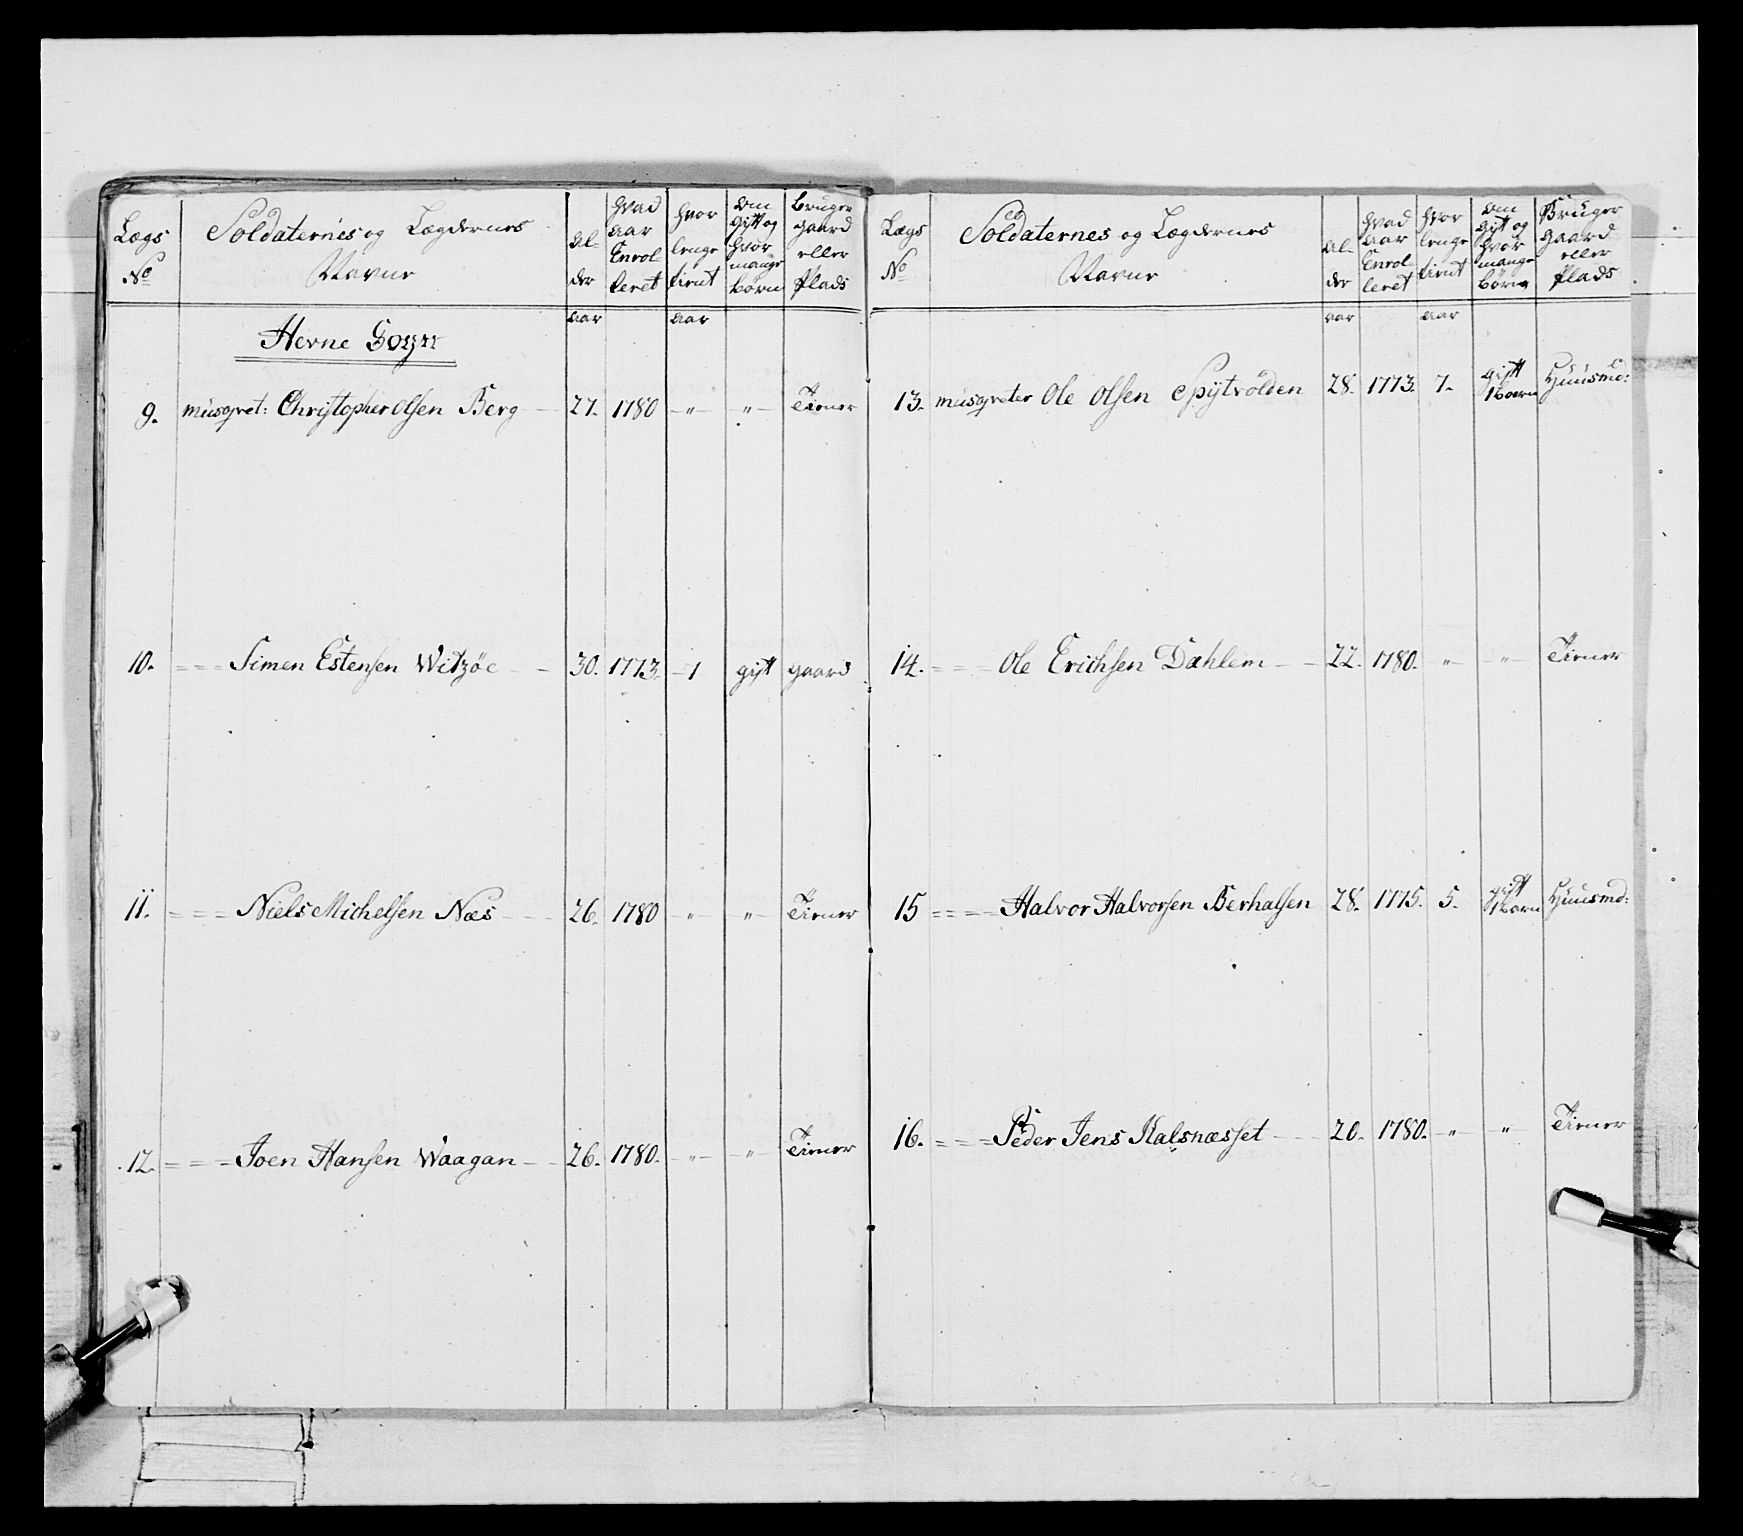 Lægs No | Soldaternes og Lægdernes Navne | Al-der | Hvad Aar Enrol-leret | Hvor lenge tient | Om Gift og hvor mange børn | Bruger Gaard eller Plads
Aar | Aar
Herne Sogn
9. musqvet: Christopher Olsen Berg – 27. 1780 –"– "– Tiener
10. === Simen Estensen Witzöe – – 30. 1773. –7 gift gaard
11. === Niels Michelsen Næs – – 26. 1780 " "– Tiener
12. === Joen Hansen Waagan – – 26. 1780. –"– –"– Tiener
Lægs No | Soldaternes og Lægdernes Navne | Al-der | Hvad Aar Enrol-leret | Hvor lenge tient | Om Gift og hvor mange børn | Bruger Gaard eller Plads
Aar | Aar
13. musqveter Ole Olsen Spÿtvolden 28. 1773. 7. gift 1 barn Huusmd:
14. === Ole Erichsen Dahlem – – 22. 1780. "– "– Tiener
15 === Halvor Halvorsen Berhalsen 28. 1775. 5. gift 1 barn Huusmd:
16. === Peder Jens Kalsnæsset – – 20. 1780. –"– " Tiener